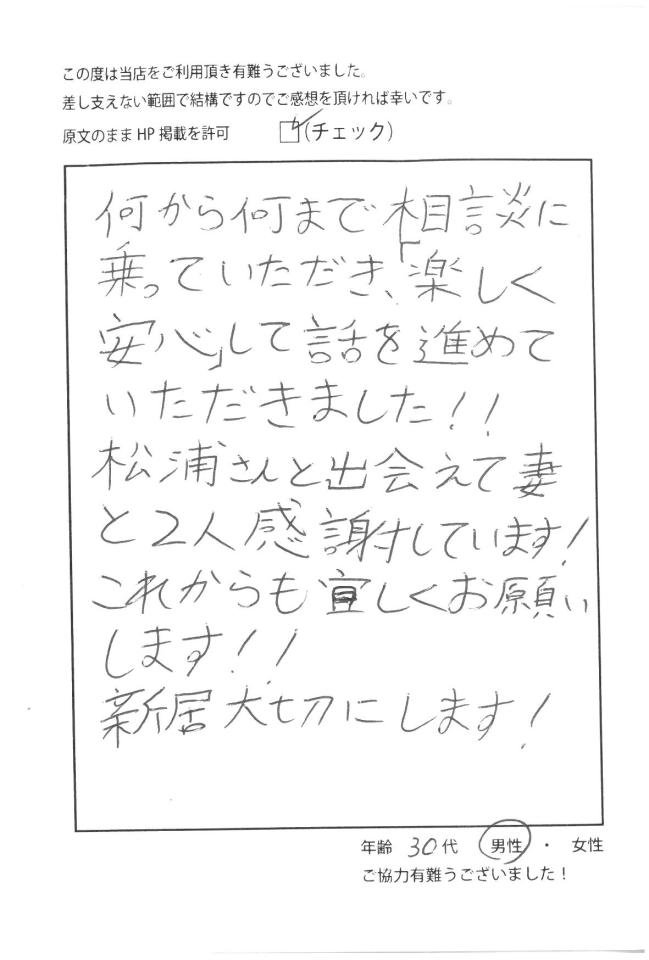 この度は当店をご利用頂き有難うございました。
差し支えない範囲で結構ですのでご感想を頂ければ幸いです。
原文のままHP掲載を許可 ☑(チェック)
何から何まで相談に
乗っていただき、「楽しく
安心」して話を進めて
いただきました！！
松浦さんと出会えて妻
と2人感謝しています！
これからも宜しくお願い
します！！
新居大切にします！
年齢 30代 男性 ・ 女性
ご協力有難うございました！